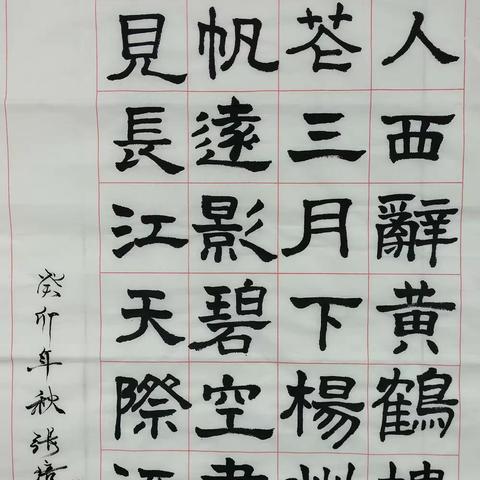 人西辭黄鶴
花三月下楊州
帆遠影碧空
見長江天際
癸卯年秋張